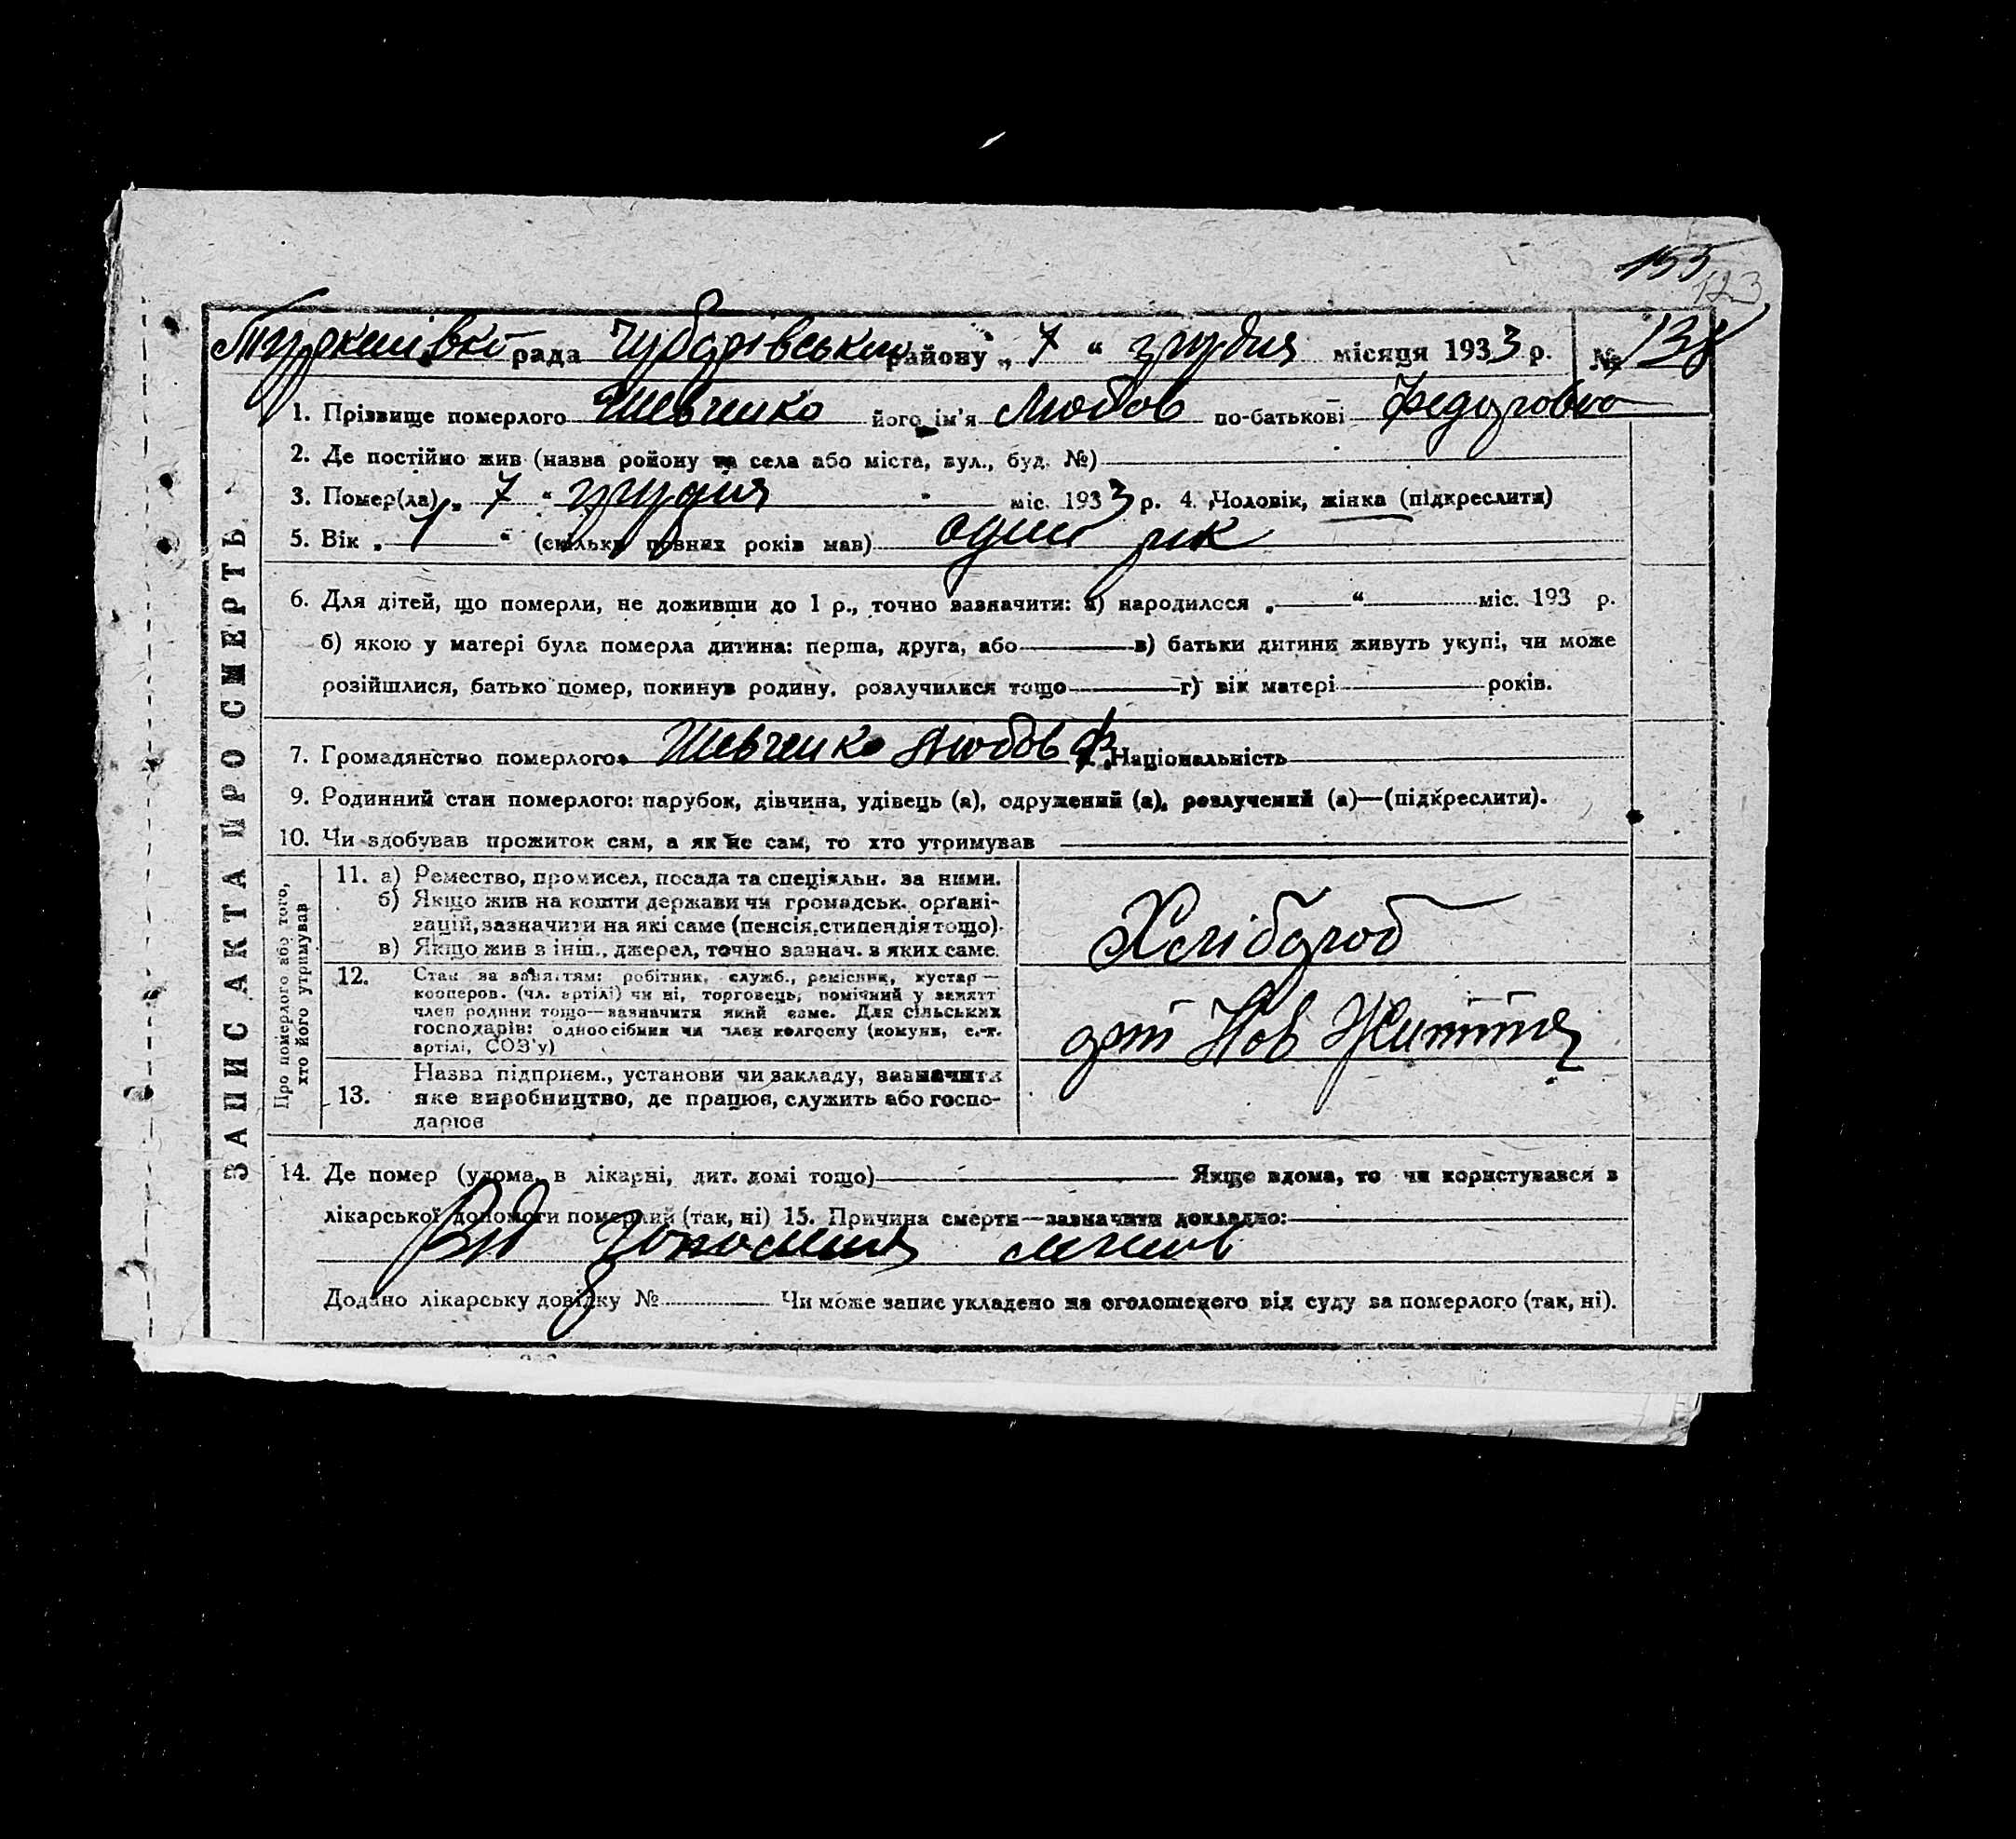 155
123
Туркенівка рада Чубарівського району „ 7 “ грудня місяця 1933 р. № 138
1. Прізвище померлого Шевченко його ім'я Любов по-батькові Федоровна
2. Де постійно жив (назва ройону та села або міста, вул., буд. №)
3. Помер(ла) „ 7 “ грудня міс. 1933 р. 4. Чоловік, жінка (підкреслити)
5. Вік „ 1 “ (скільки повних років мав) один рік
6. Для дітей, що померли, не доживши до 1 р., точно зазначити: а) народилося „ “ міс. 193 р.
б) якою у матері була померла дитина: перша, друга, або в) батьки дитини живуть укупі, чи може
розійшлися, батько помер, покинув родину, розлучилися тощо г) вік матері років.
7. Громадянство померлого Шевченко Любов Ф. Національність
9. Родинний стан померлого: парубок, дівчина, удівець (а), одружений (а), розлучений (а)—(підкреслити).
10. Чи здобував прожиток сам, а як не сам, то хто утримував
11. а) Ремество, промисел, посада та спеціяльн. за ними.
б) Якщо жив на кошти держави чи громадськ. органі-
зацій, зазначити на які саме (пенсія, стипендія тощо).
в) Якщо жив з інш., джерел, точно зазнач. з яких саме.
Хлібороб
12. Стан за заняттям: робітник, служб., ремісник, кустар —
кооперов. (чл. артілі) чи ні, торговець, помічний у занятт
член родини тощо—зазначити який саме. Для сільських
господарів: одноосібник чи член колгоспу (комуни, с.-г.
артілі, СОЗ'у)
арт Нов Життя
13. Назва підприєм., установи чи закладу, зазначити
яке виробництво, де працює, служить або госпо-
дарює
14. Де помер (удома, в лікарні, дит. домі тощо) Якщо вдома, то чи користувався з
лікарської допомоги померлий (так, ні) 15. Причина смерти—зазначити докладно:
Від
Додано лікарську довідку № Чи може запис укладено на оголошеного від суду за померлого (так, ні).
ЗАПИС АКТА ПРО СМЕРТЬ
Про померлого або того,
хто його утримував